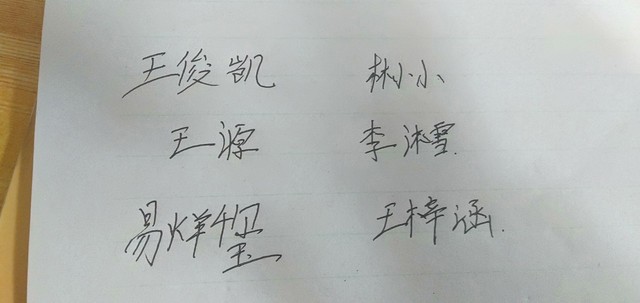 王俊凯 林小小
王源 李沐雪.
易烊玺 王梓涵.